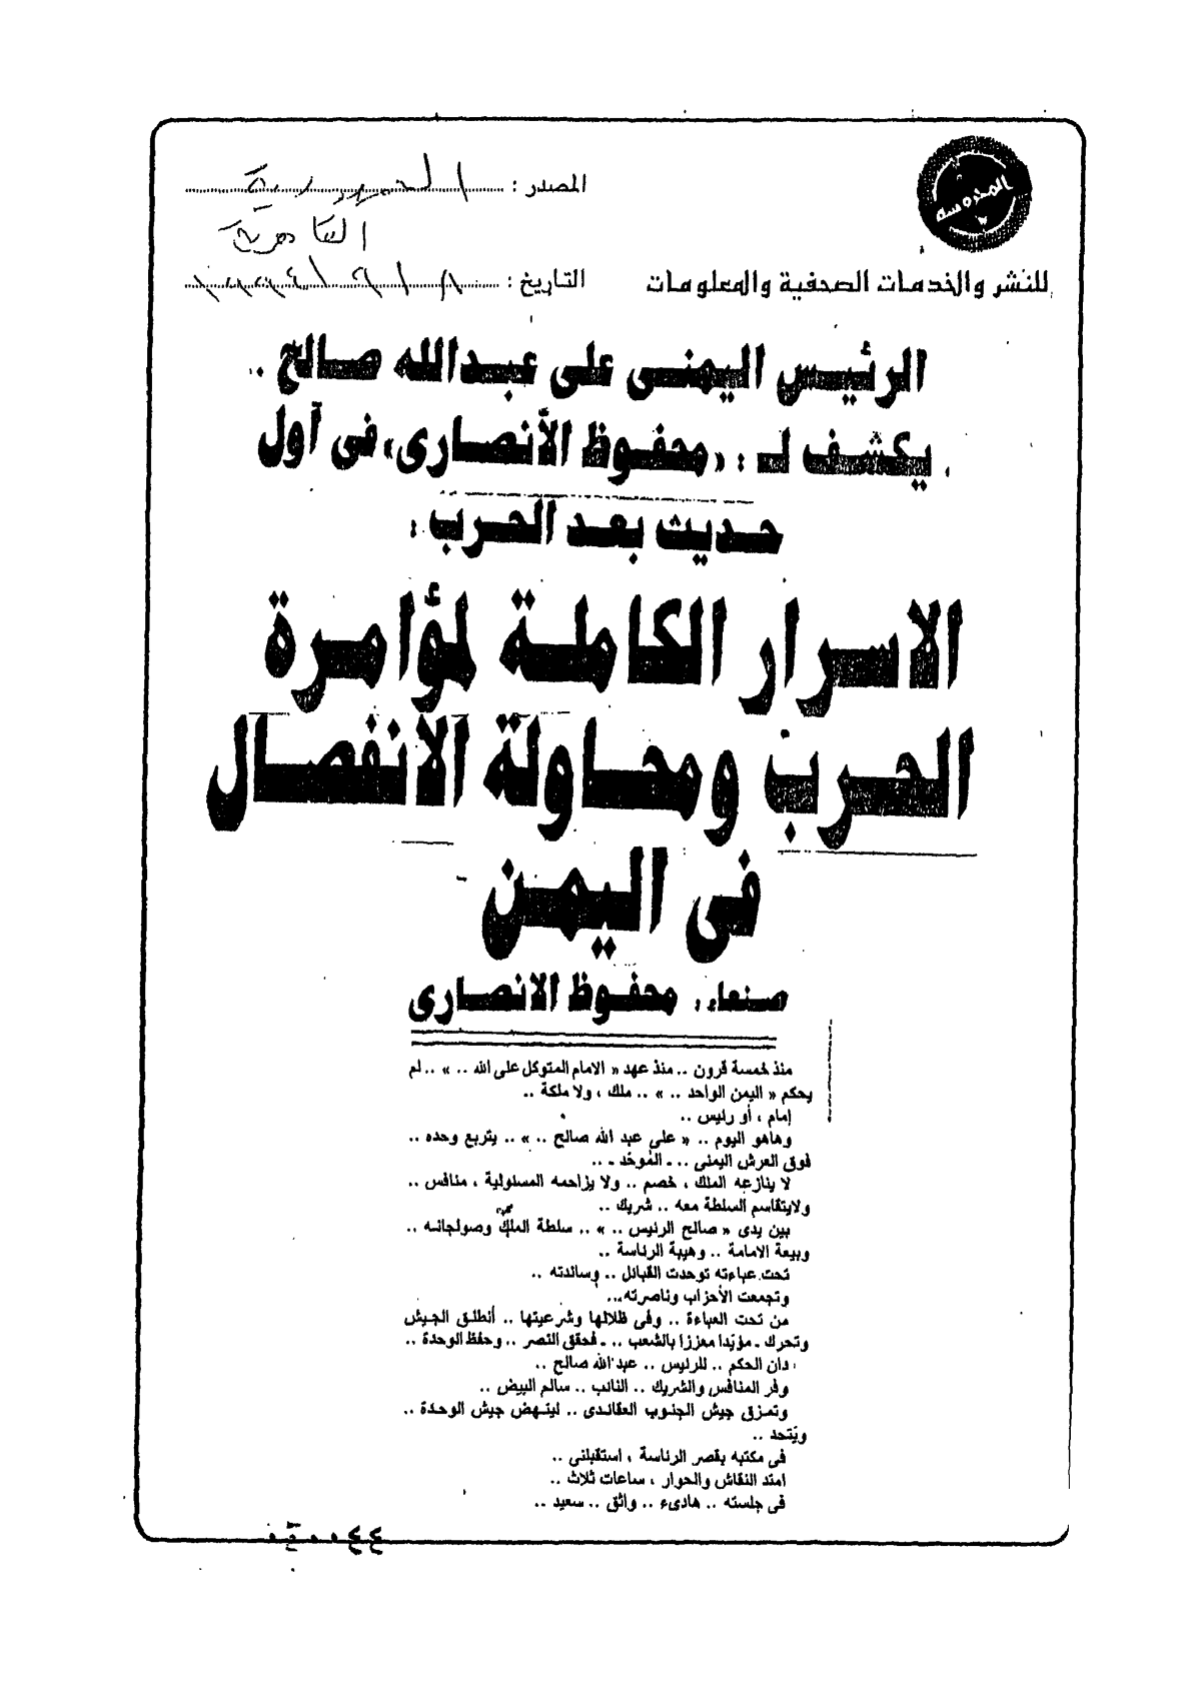 المصدر : الجمهورية
القاهرية
المحروسة
للنشر والخدمات الصحفية والمعلومات
التاريخ : ١٩٩٤/٩/٨
الرئيس اليمنى على عبدالله صالح ..
يكشف لـ : «محفوظ الأنصارى» فى آول
حديث بعد الحرب :
الاسرار الكاملة لمؤامرة
الحرب ومحاولة الانفصال
فى اليمن
صنعاء : محفوظ الانصارى
منذ خمسة قرون .. منذ عهد « الامام المتوكل على الله .. » .. لم
يحكم « اليمن الواحد .. » .. ملك ، ولا ملكة ..
إمام ، أو رئيس ..
وهاهو اليوم .. « على عبد الله صالح .. » .. يتربع وحده ..
فوق العرش اليمنى .. ـ الموحّد ـ ..
لا ينازعه الملك ، خصم .. ولا يزاحمه المسئولية ، منافس ..
ولايتقاسم السلطة معه .. شريك ..
بين يدى « صالح الرئيس .. » .. سلطة الملك وصولجانه ..
وبيعة الامامة .. وهيبة الرئاسة ..
تحت عباءته توحدت القبائل .. وساندته ..
وتجمعت الأحزاب وناصرته ..
من تحت العباءة .. وفى ظلالها وشرعيتها .. أنطلق الجيش
وتحرك ـ مؤيدا معززا بالشعب .. ـ فحقق النصر .. وحفظ الوحدة ..
دان الحكم .. للرئيس .. عبد الله صالح ..
وفر المنافس والشريك .. النائب .. سالم البيض ..
وتمزق جيش الجنوب العقائدى .. لينهض جيش الوحدة ..
ويتحد ..
فى مكتبه بقصر الرئاسة ، استقبلنى ..
امتد النقاش والحوار ، ساعات ثلاث ..
فى جلسته .. هادىء .. واثق .. سعيد ..